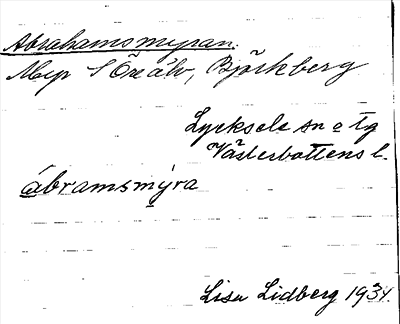 Abrahamsmyran.
Myr S Öreälv, Björkberg
Lycksele sn o tg
Västerbottens l.
åbramsmýra
Lisa Lidberg 1931.